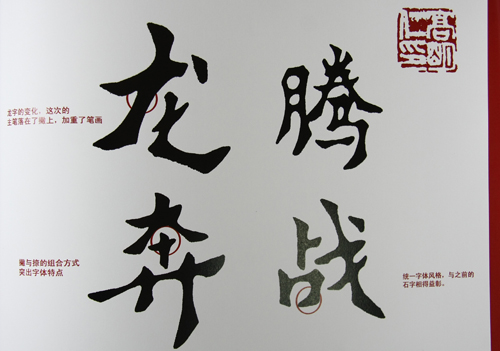 龙
腾
龙字的变化，这次的
主笔落在了上、加重了笔画
奔
战
与掠的组合方式
突出字体特点
统一字体风格，与之前的
石字相得益彰。